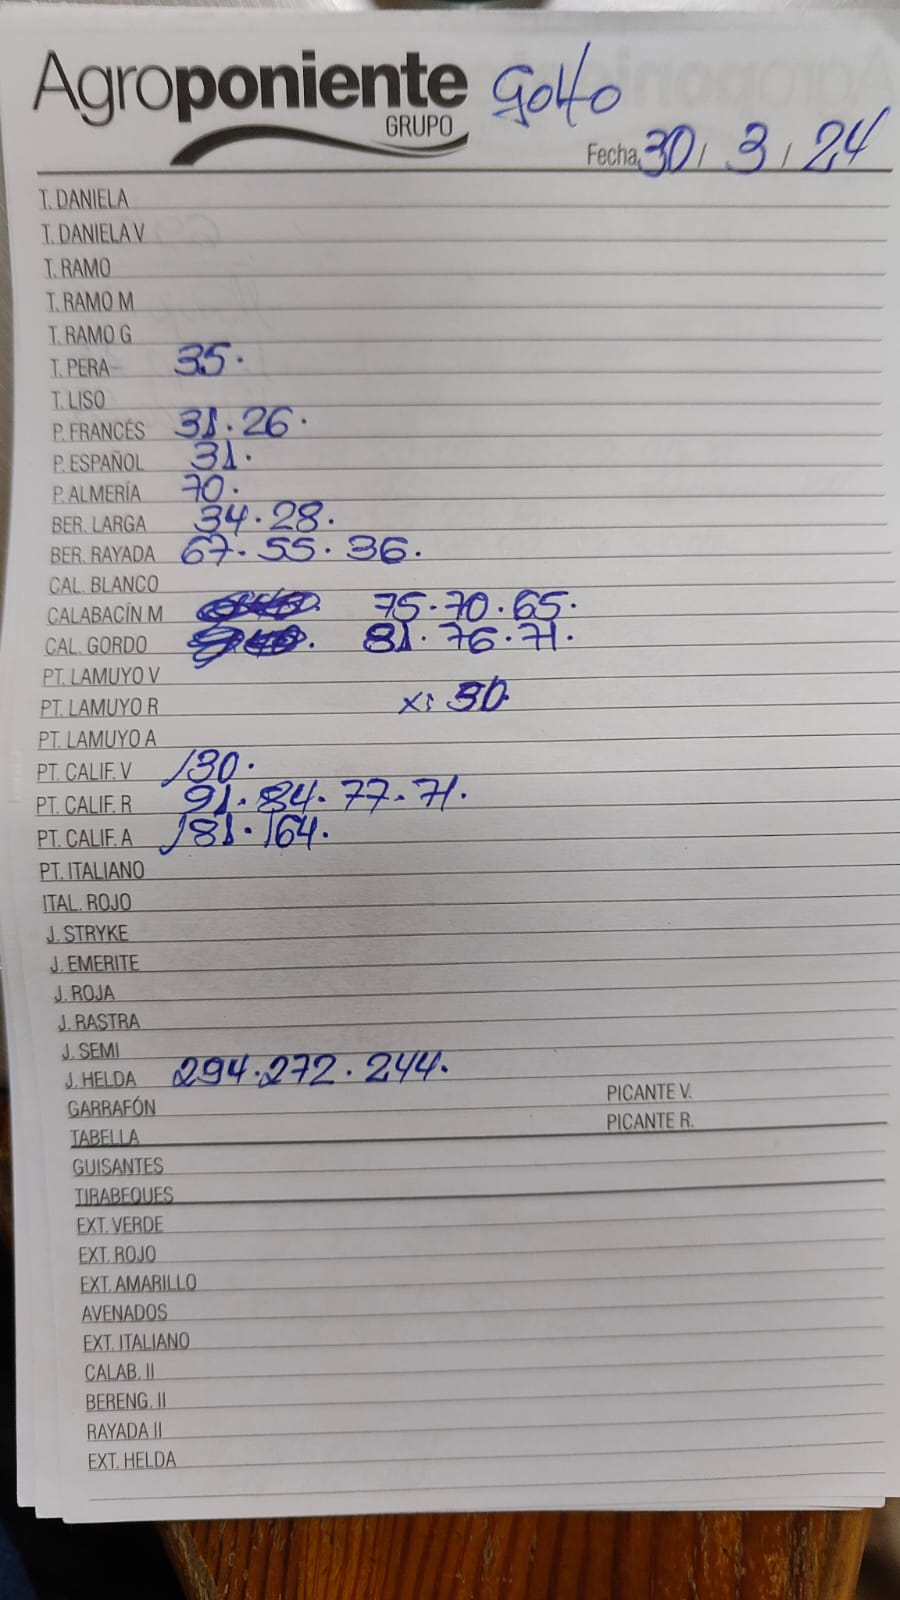 Agroponiente Golfo
GRUPO
Fecha 30 / 3 / 24
T. DANIELA
T. DANIELA V
T. RAMO
T. RAMO M
T. RAMO G
T. PERA 35.
T. LISO
P. FRANCÉS 31. 26.
P. ESPAÑOL 31.
P. ALMERÍA 70.
BER. LARGA 34. 28.
BER. RAYADA 67. 55. 36.
CAL. BLANCO
CALABACÍN M 75. 70. 65.
CAL. GORDO 81. 76. 71.
PT. LAMUYO V
PT. LAMUYO R x: 30
PT. LAMUYO A
PT. CALIF. V 130.
PT. CALIF. R 91. 84. 77. 71.
PT. CALIF. A 181. 164.
PT. ITALIANO
ITAL. ROJO
J. STRYKE
J. EMERITE
J. ROJA
J. RASTRA
J. SEMI
J. HELDA 294. 272. 244.
GARRAFÓN PICANTE V.
TABELLA PICANTE R.
GUISANTES
TIRABEQUES
EXT. VERDE
EXT. ROJO
EXT. AMARILLO
AVENADOS
EXT. ITALIANO
CALAB. II
BERENG. II
RAYADA II
EXT. HELDA